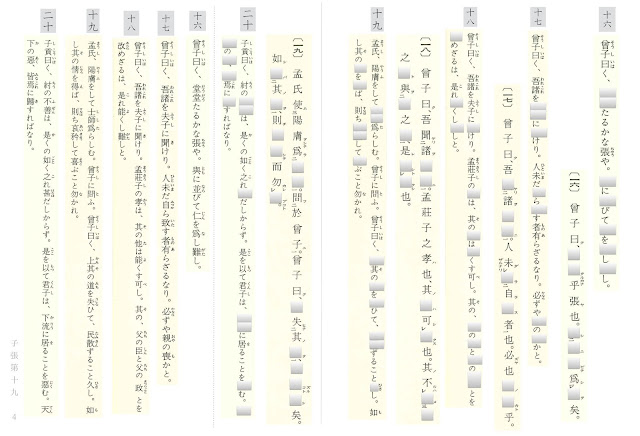 十六
曾子曰く、■■たるかな張や。■に■びて■を■し■し。
〔一六〕 曾子曰、■■乎張也。■■■爲■矣。
十七
曾子曰く、吾諸を■■に■けり。人未だ■ら■す者有らざるなり。必ずや■の■かと。
〔一七〕 曾子曰、吾■諸■■。人未■自■者也。必也■■乎。
十八
曾子曰く、吾諸を■■に■けり。孟莊子の■は、其の■は■くす可し。其の、■の■と■の■とを
■めざるは、是れ■くし■しと。
〔一八〕 曾子曰、吾聞諸■■。孟莊子之孝也、其■可■也。其不■■
之■與■之■、是■■也。
十九
孟氏、陽膚をして■■爲らしむ。曾子に問ふ。曾子曰く、■其の■を■ひて、■■ずること■し。如
し其の■を■ば、則ち■■して■ぶこと勿かれ。
〔一九〕 孟氏使陽膚爲■■。問於曾子。曾子曰、■失其■、■■■矣。
如■其■、則■■而勿■。
二十
子貢曰く、紂の■■は、是くの如く之れ■だしからず。是を以て君子は、■■に居ることを■む。■
■の■、■■に■すればなり。
十六
曾子曰く、堂堂たるかな張や。與に並びて仁を爲し難し。
十七
曾子曰く、吾諸を夫子に聞けり。人未だ自ら致す者有らざるなり。必ずや親の喪かと。
十八
曾子曰く、吾諸を夫子に聞けり。孟莊子の孝は、其の他は能くす可し。其の、父の臣と父の政とを
改めざるは、是れ能くし難しと。
十九
孟氏、陽膚をして士師爲らしむ。曾子に問ふ。曾子曰く、上其の道を失ひて、民散ずること久し。如
し其の情を得ば、則ち哀矜して喜ぶこと勿かれ。
二十
子貢曰く、紂の不善は、是くの如く之れ甚だしからず。是を以て君子は、下流に居ることを惡む。天
下の惡、皆焉に歸すればなり。
子張第十九 4